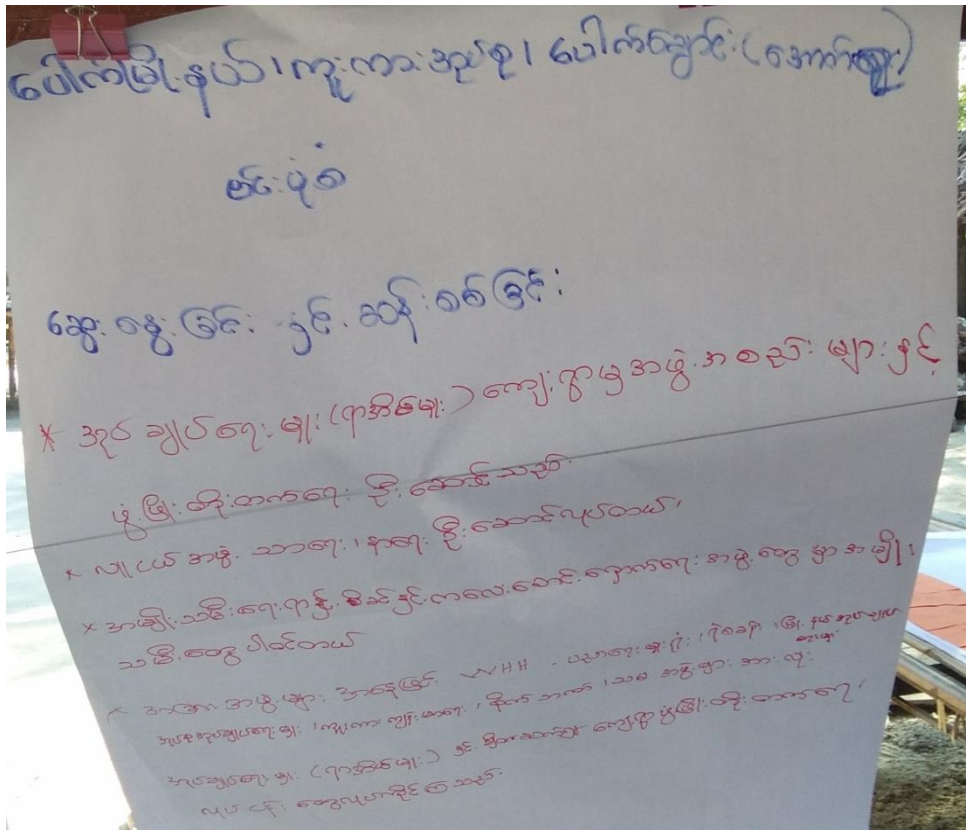 ပေါက်မြို့နယ်၊ ကူကားအုပ်စု၊ ပေါက်ချောင်း (အောက်ရွာ)
ဗင်းပုံစံ
ဆွေးနွေးခြင်း နှင့် ဆန်းစစ်ခြင်း
* အုပ်ချုပ်ရေးမှုး (ရာအိမ်မှုး) ကျေးရွာမှ အဖွဲ့အစည်းများနှင့်
ဖွံ့ဖြိုးတိုးတက်ရေး ဦးဆောင်သည်။
* လူငယ်အဖွဲ့ သာရေး၊ နာရေး ဦးဆောင်လုပ်တယ်၊
× အမျိုးသမီးရေးရာနှင့် မိခင်နှင့်ကလေးစောင့်ရှောက်ရေးအဖွဲ့တွေမှာ အမျိုး
သမီးတွေ ပါဝင်တယ်
အခြားအဖွဲ့များ အနေဖြင့် WHH ပညာရေးမှုးရုံး၊ ရဲစခန်း၊ မြို့နယ်အုပ်ချုပ်ရေးမှုး
အုပ်စုအုပ်ချုပ်ရေးမှုး၊ ကူကားကျန်းမာရေး၊ သမအဖွဲ့များအားလုံး
အုပ်ချုပ်ရေးမှုး (ရာအိမ်မှုး) နှင့် ကျေးရွာဖွံ့ဖြိုးတိုးတက်ရေး
လုပ်ငန်းတွေလုပ်ကိုင်ကြသည်။